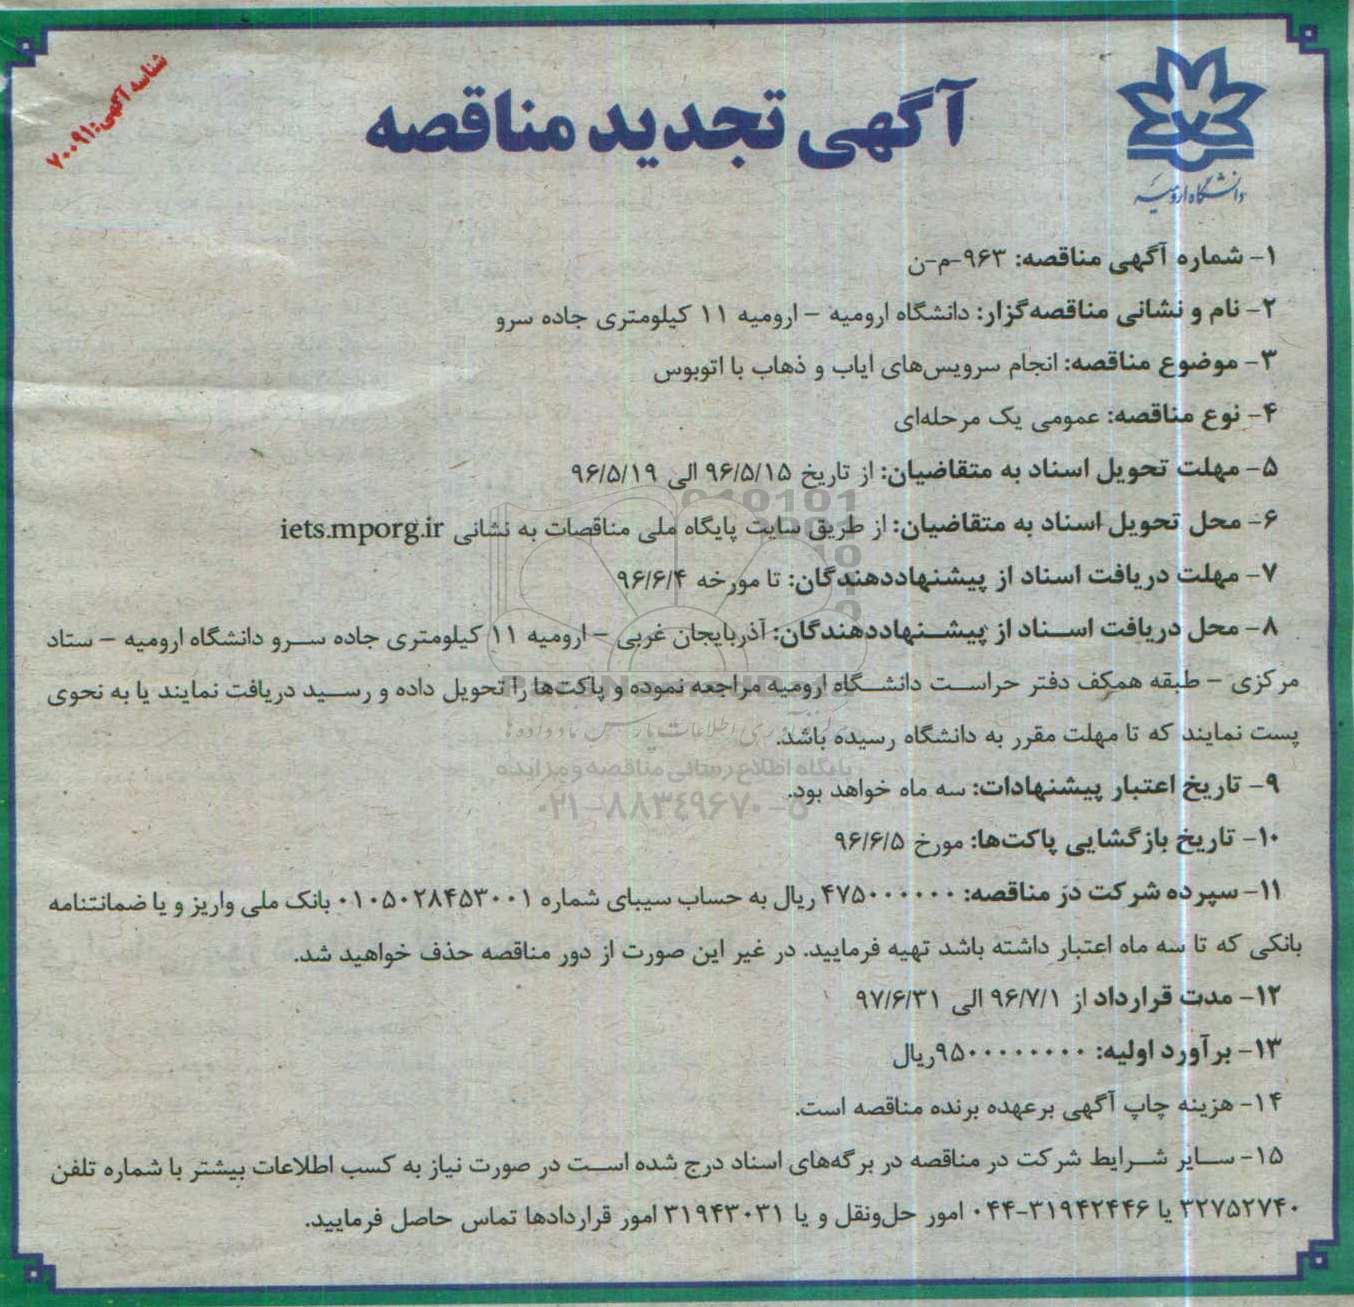 شناسه آگهی: ۷۰۰۹۱
آگهی تجدید مناقصه
دانشگاه ارومیه
۱- شماره آگهی مناقصه: ۹۶۳-م-ن
۲- نام و نشانی مناقصه‌گزار: دانشگاه ارومیه – ارومیه ۱۱ کیلومتری جاده سرو
۳- موضوع مناقصه: انجام سرویس‌های ایاب و ذهاب با اتوبوس
۴- نوع مناقصه: عمومی یک مرحله‌ای
۵- مهلت تحویل اسناد به متقاضیان: از تاریخ ۹۶/۵/۱۵ الی ۹۶/۵/۱۹
۶- محل تحویل اسناد به متقاضیان: از طریق سایت پایگاه ملی مناقصات به نشانی iets.mporg.ir
۷- مهلت دریافت اسناد از پیشنهاددهندگان: تا مورخه ۹۶/۶/۴
۸- محل دریافت اسناد از پیشنهاددهندگان: آذربایجان غربی – ارومیه ۱۱ کیلومتری جاده سرو دانشگاه ارومیه – ستاد
مرکزی – طبقه همکف دفتر حراست دانشگاه ارومیه مراجعه نموده و پاکت‌ها را تحویل داده و رسید دریافت نمایند یا به نحوی
پست نمایند که تا مهلت مقرر به دانشگاه رسیده باشد.
پایگاه اطلاع رسانی مناقصه و مزایده
۹- تاریخ اعتبار پیشنهادات: سه ماه خواهد بود.
۰۲۱-۸۸۳۴۹۶۷۰-۵
۱۰- تاریخ بازگشایی پاکت‌ها: مورخ ۹۶/۶/۵
۱۱- سپرده شرکت در مناقصه: ۴۷۵۰۰۰۰۰۰ ریال به حساب سیبای شماره ۰۱۰۵۰۲۸۴۵۳۰۰۱ بانک ملی واریز و یا ضمانتنامه
بانکی که تا سه ماه اعتبار داشته باشد تهیه فرمایید. در غیر این صورت از دور مناقصه حذف خواهید شد.
۱۲- مدت قرارداد از ۹۶/۷/۱ الی ۹۷/۶/۳۱
۱۳- برآورد اولیه: ۹۵۰۰۰۰۰۰۰۰ریال
۱۴- هزینه چاپ آگهی برعهده برنده مناقصه است.
۱۵- سایر شرایط شرکت در مناقصه در برگه‌های اسناد درج شده است در صورت نیاز به کسب اطلاعات بیشتر با شماره تلفن
۳۲۷۵۲۷۴۰ یا ۳۱۹۴۲۴۴۶-۰۴۴ امور حل‌ونقل و یا ۳۱۹۴۳۰۳۱ امور قراردادها تماس حاصل فرمایید.